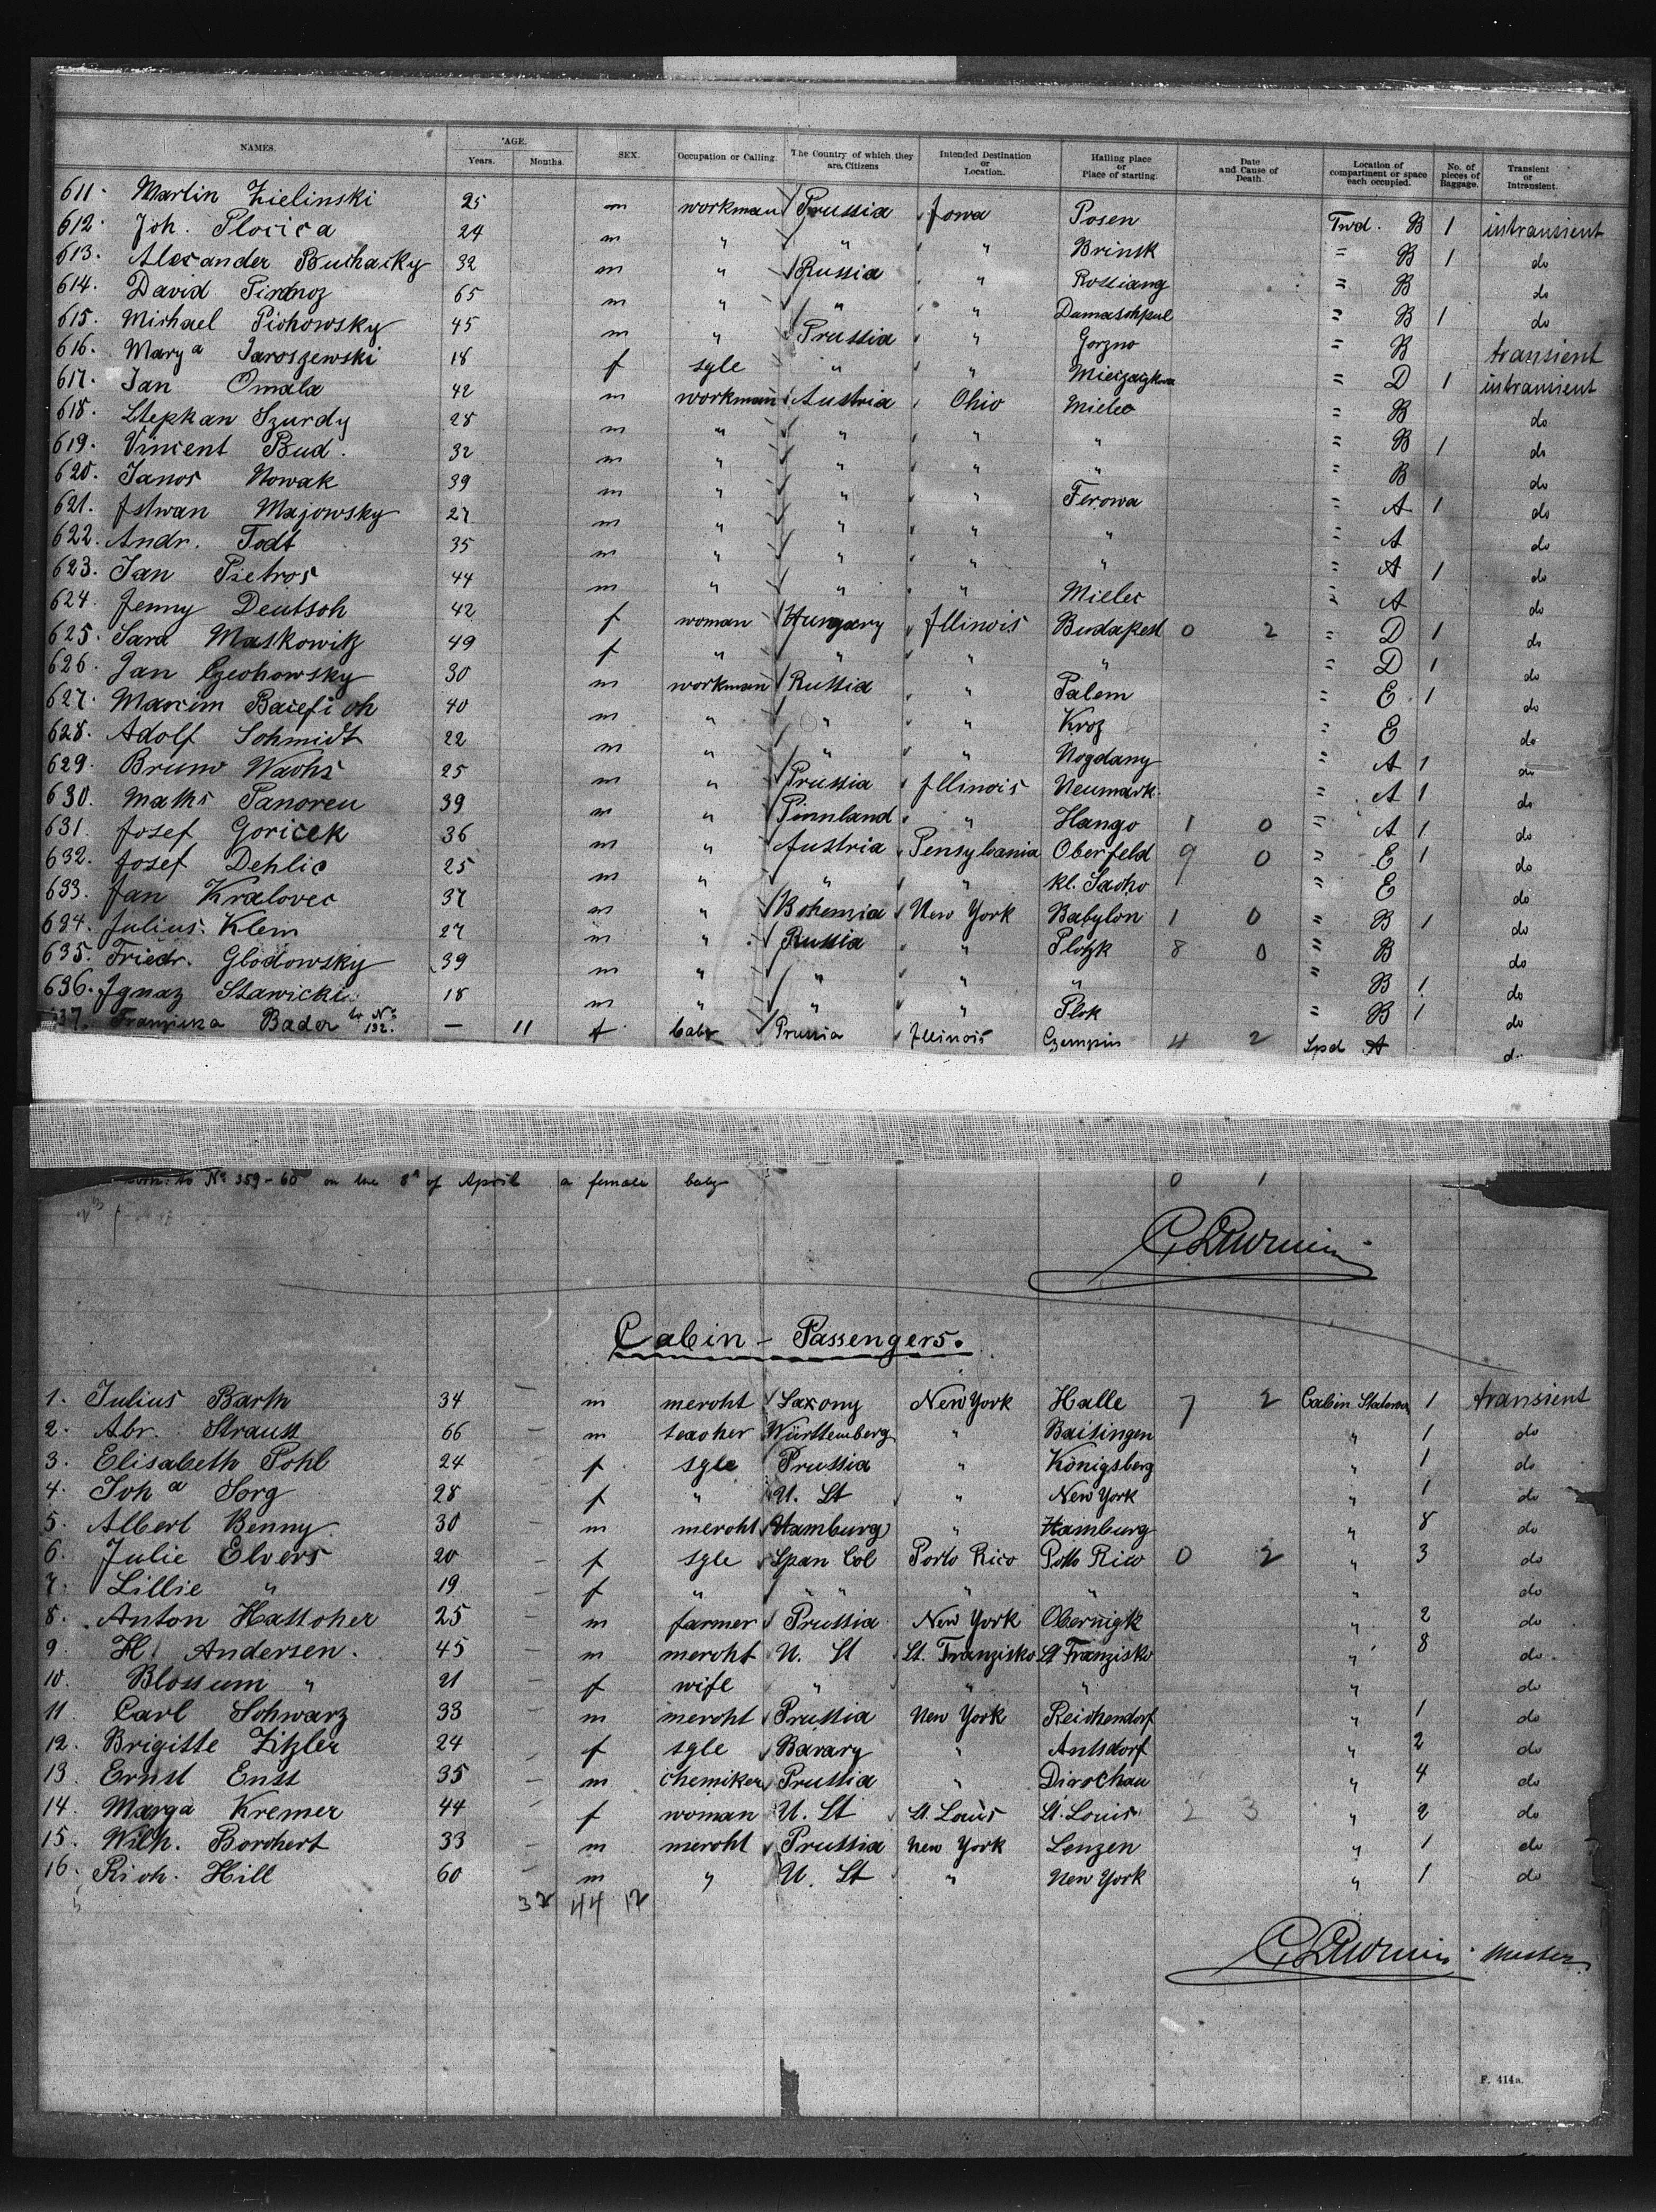 NAMES. AGE. Years. Months. SEX. Occupation or Calling. The Country of which they are, Citizens Intended Destination or Location. Hailing place or Place of starting. Date and Cause of Death. Location of compartment or space each occupied. No. of pieces of Baggage. Transient or Intransient.
611. Martin Zielinski 25 m workman Prussia Iowa Posen Twd. B 1 intransient
612. Joh. Plocica 24 m " " " Brinsk = B 1 do
613. Alexander Buchacky 32 m " Russia " Rossiang = B do
614. David 65 m " " " = B 1 do
615. Michael Pichowsky 45 m " Prussia " Gorzno = B transient
616. Marya Jaroszewski 18 f sgle " " = D 1 intransient
617. Jan Omala 42 m workman Austria Ohio Mielec = B do
618. Stephan Szurdy 28 m " " " " = B 1 do
619. Vincent Bud. 32 m " " " " = B do
620. Janos Nowak 39 m " " " Ferowa = A 1 do
621. Istwan Majowsky 27 m " " " " = A do
622. Andr. Todt 35 m " " " " = A 1 do
623. Jan Pietros 44 m " " " Mielec = A do
624. Jenny Deutsch 42 f woman Hungary Illinois Budapest 0 2 = D 1 do
625. Sara Maskowitz 49 f " " " " = D 1 do
626. Jan Czechowsky 30 m workman Russia " Palem = E 1 do
627. Marcim 40 m " " " Kroz = E do
628. Adolf Schmidt 22 m " " " Nogdany = A 1 do
629. Bruno Wachs 25 m " Prussia Illinois Neumark = A 1 do
630. Maths Panoreu 39 m " Finnland " Hango 1 0 = A 1 do
631. Josef Goricek 36 m " Austria Pensylvania Oberfeld 9 0 = E 1 do
632. Josef Dehlic 25 m " " " Kl. = E do
633. Jan Kralovec 37 m " Bohemia New York Babylon 1 0 = B 1 do
634. Julius Klem 27 m " Russia " Plotzk 8 0 = B do
635. Friedr. Glodowsky 39 m " " " " = B 1 do
636. Ignaz Stawicki 18 m " " " Plok = B 1 do
637. Franziska Bader to No 132. — 11 f baby Prussia Illinois Czempin 4 2 Spd A do
to No 359-60 on the 8th of April a female baby 0 1
Cabin - Passengers.
1. Julius Barth 34 — m mercht Saxony New York Halle 7 2 Cabin 1 transient
2. Abr. Strauss 66 — m teacher Württemberg " Baisingen " 1 do
3. Elisabeth Pohl 24 — f sgle Prussia " Königsberg " 1 do
4. Joha Sorg 28 — f " U. St " New York " 1 do
5. Albert Benny 30 — m mercht Hamburg " Hamburg " 8 do
6. Julie Elvers 20 — f sgle Span Col Porto Rico Porto Rico 0 2 " 3 do
7. Lillie " 19 — f " " " " " " do
8. Anton Hasscher 25 — m farmer Prussia New York Obernigk " 2 do
9. H. Andersen. 45 — m mercht U. St St. Franzisko St Franzisko " 8 do
10. Blossum " 21 — f wife " " " " do
11. Carl Schwarz 33 — m mercht Prussia New York Reichendorf " 1 do
12. Brigitte Zitzler 24 — f sgle Bavary " Antsdorf " 2 do
13. Ernst Enss 35 — m chemiker Prussia " Dirschau " 4 do
14. Marga Kremer 44 — f woman U. St St. Louis St. Louis 2 3 " 2 do
15. Wilh. Borchert 33 — m mercht Prussia New York Lenzen " 1 do
16. Rich. Hill 60 — m " U. St " New York " 1 do
44 12
Master
F. 414a.